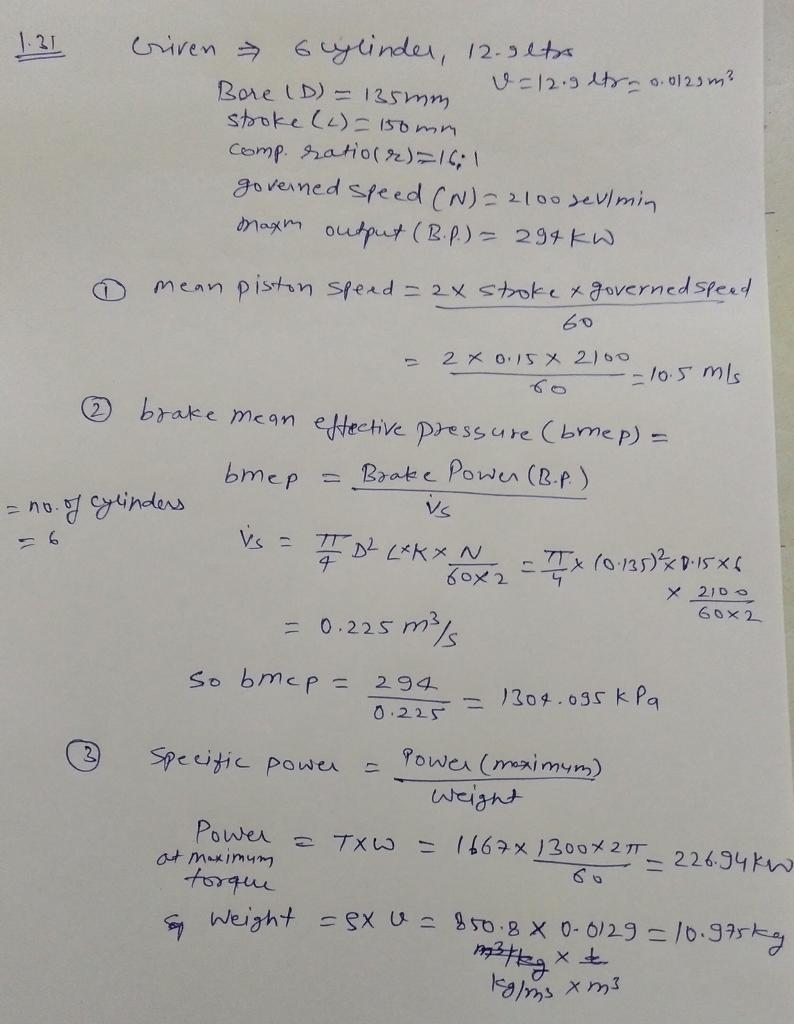 1.31 Given ⇒ 6 cylinder, 12.9 ltrs
V = 12.9 ltr = 0.0129 m³
Bore (D) = 135mm
stroke (L) = 150 mm
comp. ratio (r) = 16:1
governed speed (N) = 2100 rev/min
maxm output (B.P.) = 294 KW
① mean piston speed = 2 x stroke x governed speed
60
= 2 x 0.15 x 2100 = 10.5 m/s
60
② brake mean effective pressure (bmep) =
bmep = Brake Power (B.P.)
V̇s
= no. of cylinders
= 6
V̇s = π/4 D² L x K x N/60x2 = π/4 x (0.135)² x 0.15 x 6
x 2100/60x2
= 0.225 m³/s
So bmep = 294/0.225 = 1304.095 kPa
③ Specific power = Power (maximum)
Weight
Power = TXW = 1667 x 1300 x 2π / 60 = 226.94 KW
at maximum
torque
Weight = ρ x V = 850.8 x 0.0129 = 10.975 kg
kg/m3 x m3